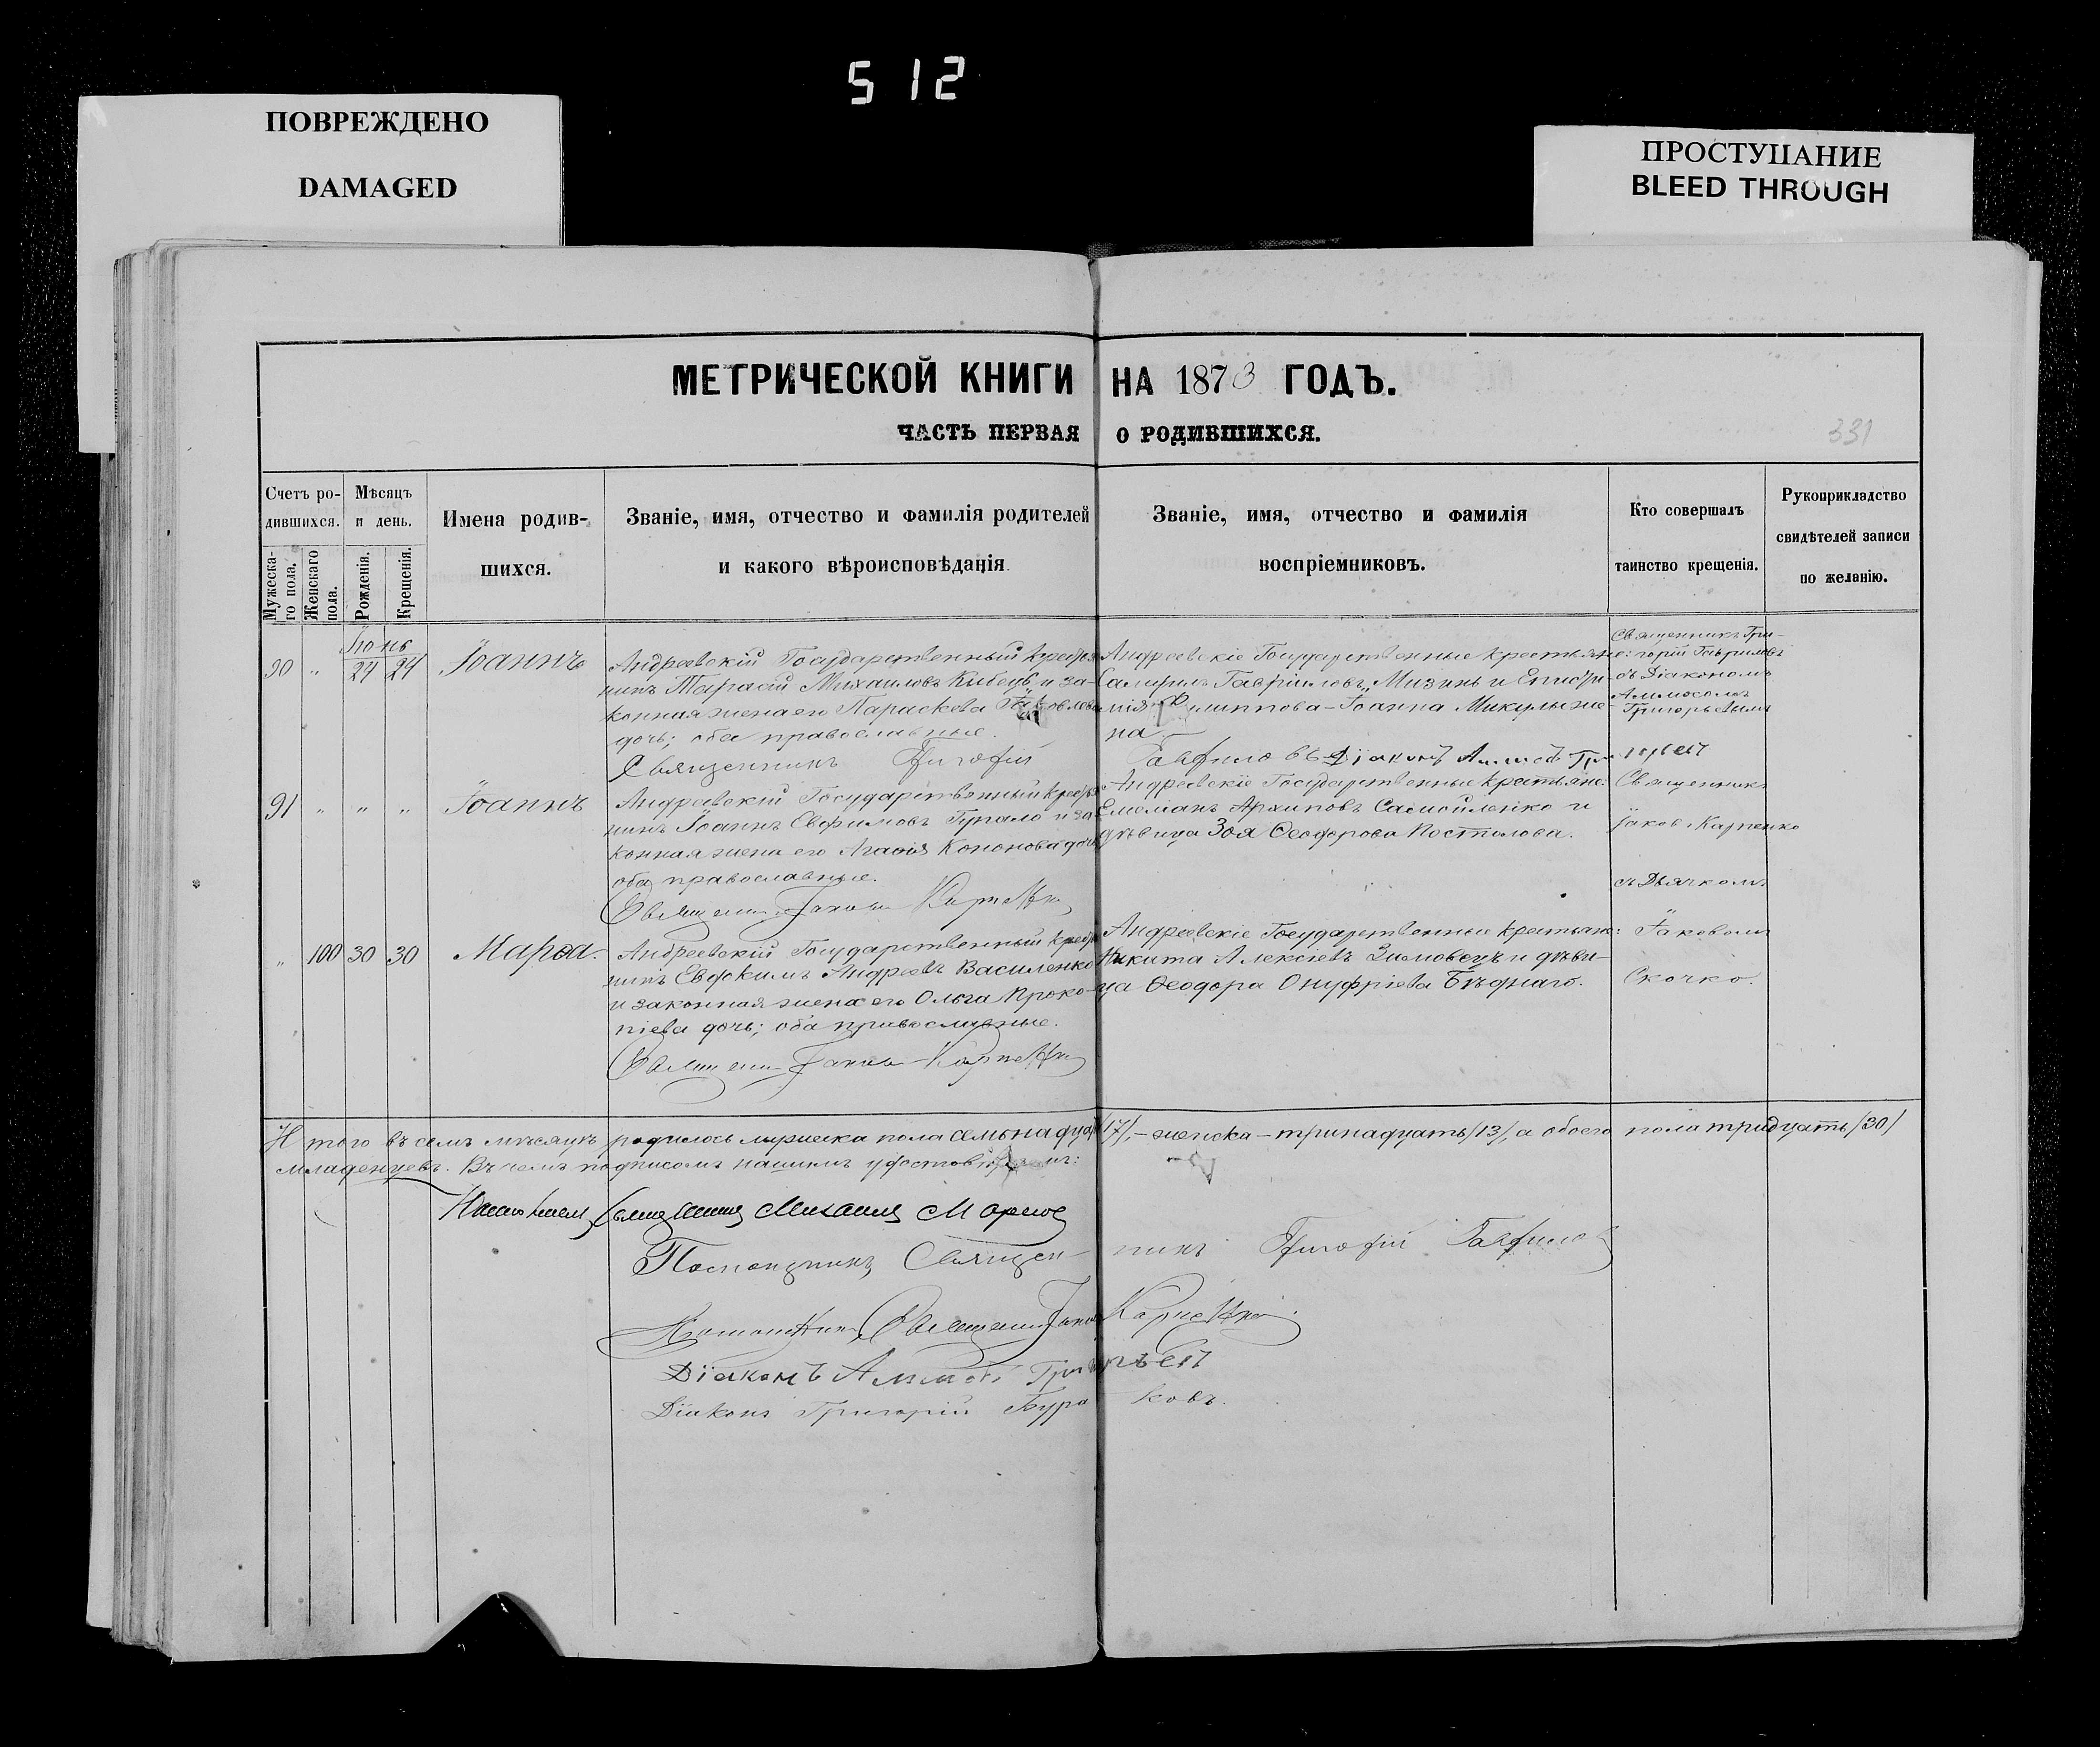 512
ПОВРЕЖДЕНО
DAMAGED
ПРОСТУПАНИЕ
BLEED THROUGH
МЕТРИЧЕСКОЙ КНИГИ НА 1873 ГОДЪ.
ЧАСТЬ ПЕРВАЯ О РОДИВШИХСЯ.
331
Счетъ ро-
дившихся.
Мужеска-
го пола.
Женскаго
пола.
Мѣсяцъ
и день.
Рожденія.
Крещенія.
Имена родив-
шихся.
Званіе, имя, отчество и фамилія родителей
и какого вѣроисповѣданія
Званіе, имя, отчество и фамилія
воспріемниковъ.
Кто совершалъ
таинство крещенія.
Рукоприкладство
свидѣтелей записи
по желанію.
90 " 24 24 Іоаннъ
Андреевскій Государственный крестья
нинъ Тарасій Михаиловъ Кибецъ и за-
конная жена его Параскева Іаковлева
дочь; оба православные.
Священникъ Григорій
Андреевскіе Государственные крестьяне:
Гавріиловъ Мизинъ и
Филиппова - Іоанна
на
Гавриловъ Діаконъ
Священникъ Гри-
горій Гавриловъ
съ Діакономъ
Григорьевымъ
91 " " " Іоаннъ
Андреевскій Государственный крестья
нинъ Іоаннъ Евфимовъ и за
конная жена его Агафія Кононова дочь
оба православные.
Священникъ Іаковъ Карпенко
Андреевскіе Государственные крестьяне:
Емеліанъ Архиповъ Самойленко и
дѣвица Зоя Ѳеодорова Постолова.
Священникъ
Іаковъ Карпенко
съ Дьячкомъ
Іаковомъ
Скочко.
" 100 30 30 Марѳа.
Андреевскій Государственный крестья
нинъ Евдокимъ Андреевъ Василенко
и законная жена его Ольга Проко-
піева дочь; оба православные.
Священникъ Іаковъ Карпенко
Андреевскіе Государственные крестьяне:
Никита Алексіевъ Зимовецъ и дѣви-
ца Ѳеодора Онуфріева Бѣднаго.
Итого въ семъ мѣсяцѣ родилось мужеска пола семьнадцать /17/, - женска - тринадцать /13/, а обоего пола тридцать /30/
младенцевъ. Въ чемъ подписомъ нашимъ удостовѣряемъ:
Священникъ Михаилъ
Помощникъ Священникъ Григорій Гавриловъ
Помощникъ Священникъ Іаковъ Карпенко
Діаконъ Григорьевъ
Діаконъ Григорій Бураковъ.